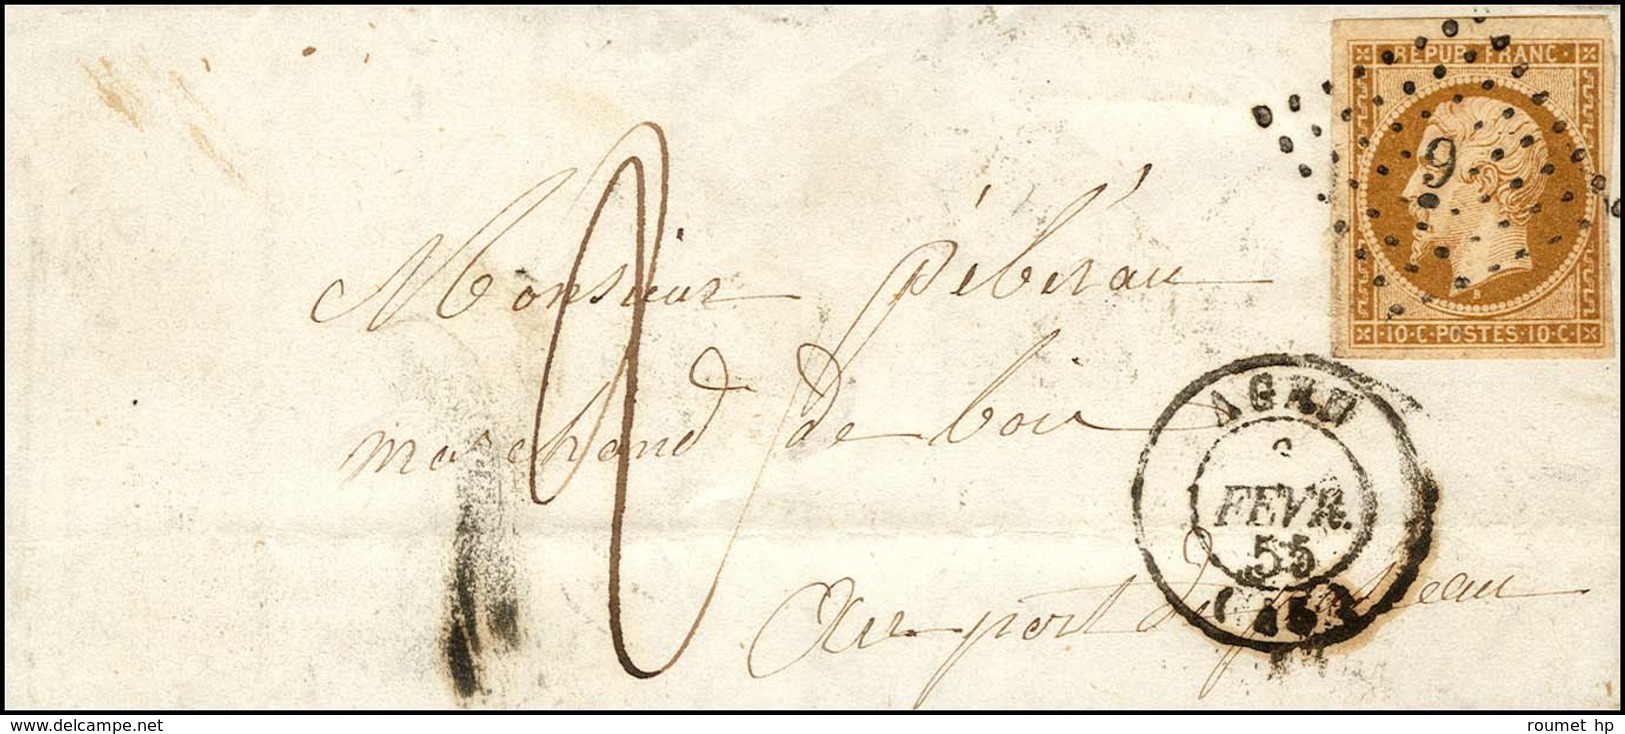 REPUB FRANC
9
10·C·POSTES·10·C
2
Monsieur péberau
marchand de bois
AGEN
FEVR.
55
(45)
Au port du passeau
www.delcampe.net
roumet hp